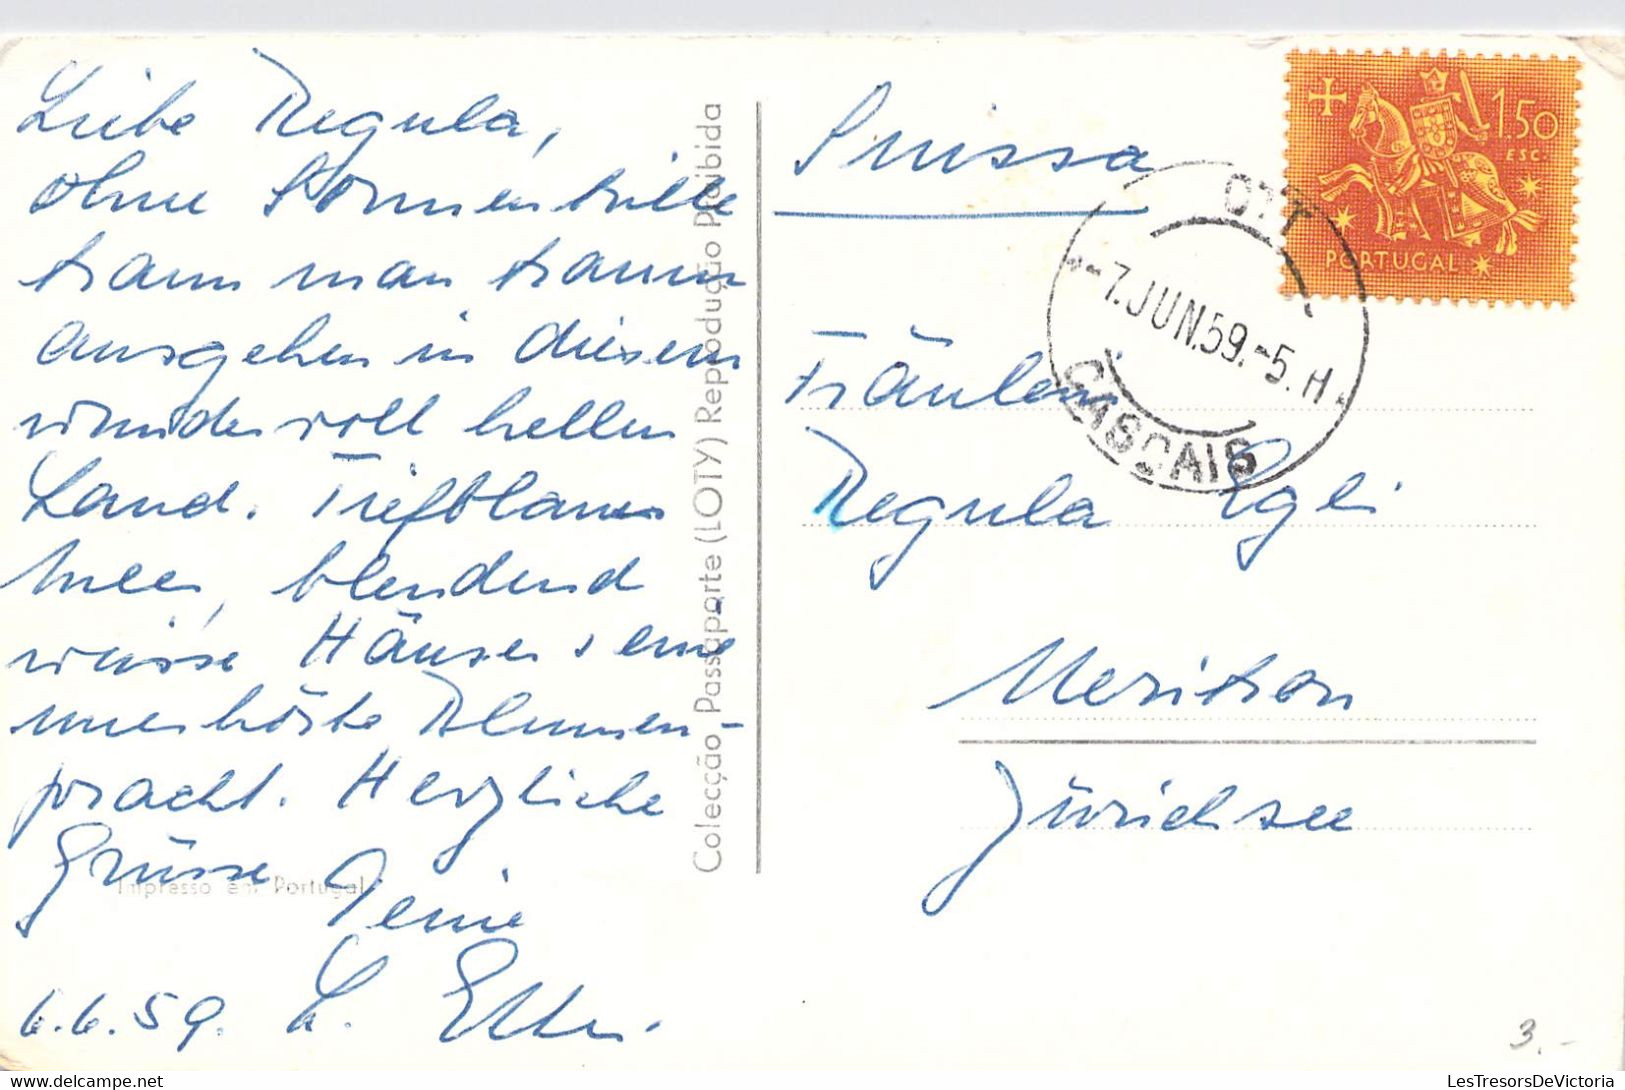 Liebe Regula,
ohne Sonnenbrille
kann man kaum
ausgehen in diesem
wundervoll hellen
Land. Tiefblaues
Meer, blendend
weisse Häuser, eine
unerhörte Blumen-
pracht. Herzliche
Grüsse Deine
6.6.59. L. Etter.
Impresso em Portugal
Colecção Passaporte (LOTY) Reproduçao Proibida
Suissa
Fräulein
Regula Egli
Meriken
Zürichsee
1.50
ESC.
PORTUGAL
CTT
-7.JUN.59.-5.H
CASCAIS
3.-
LesTresorsDeVictoria.com
LesTresorsDeVictoria